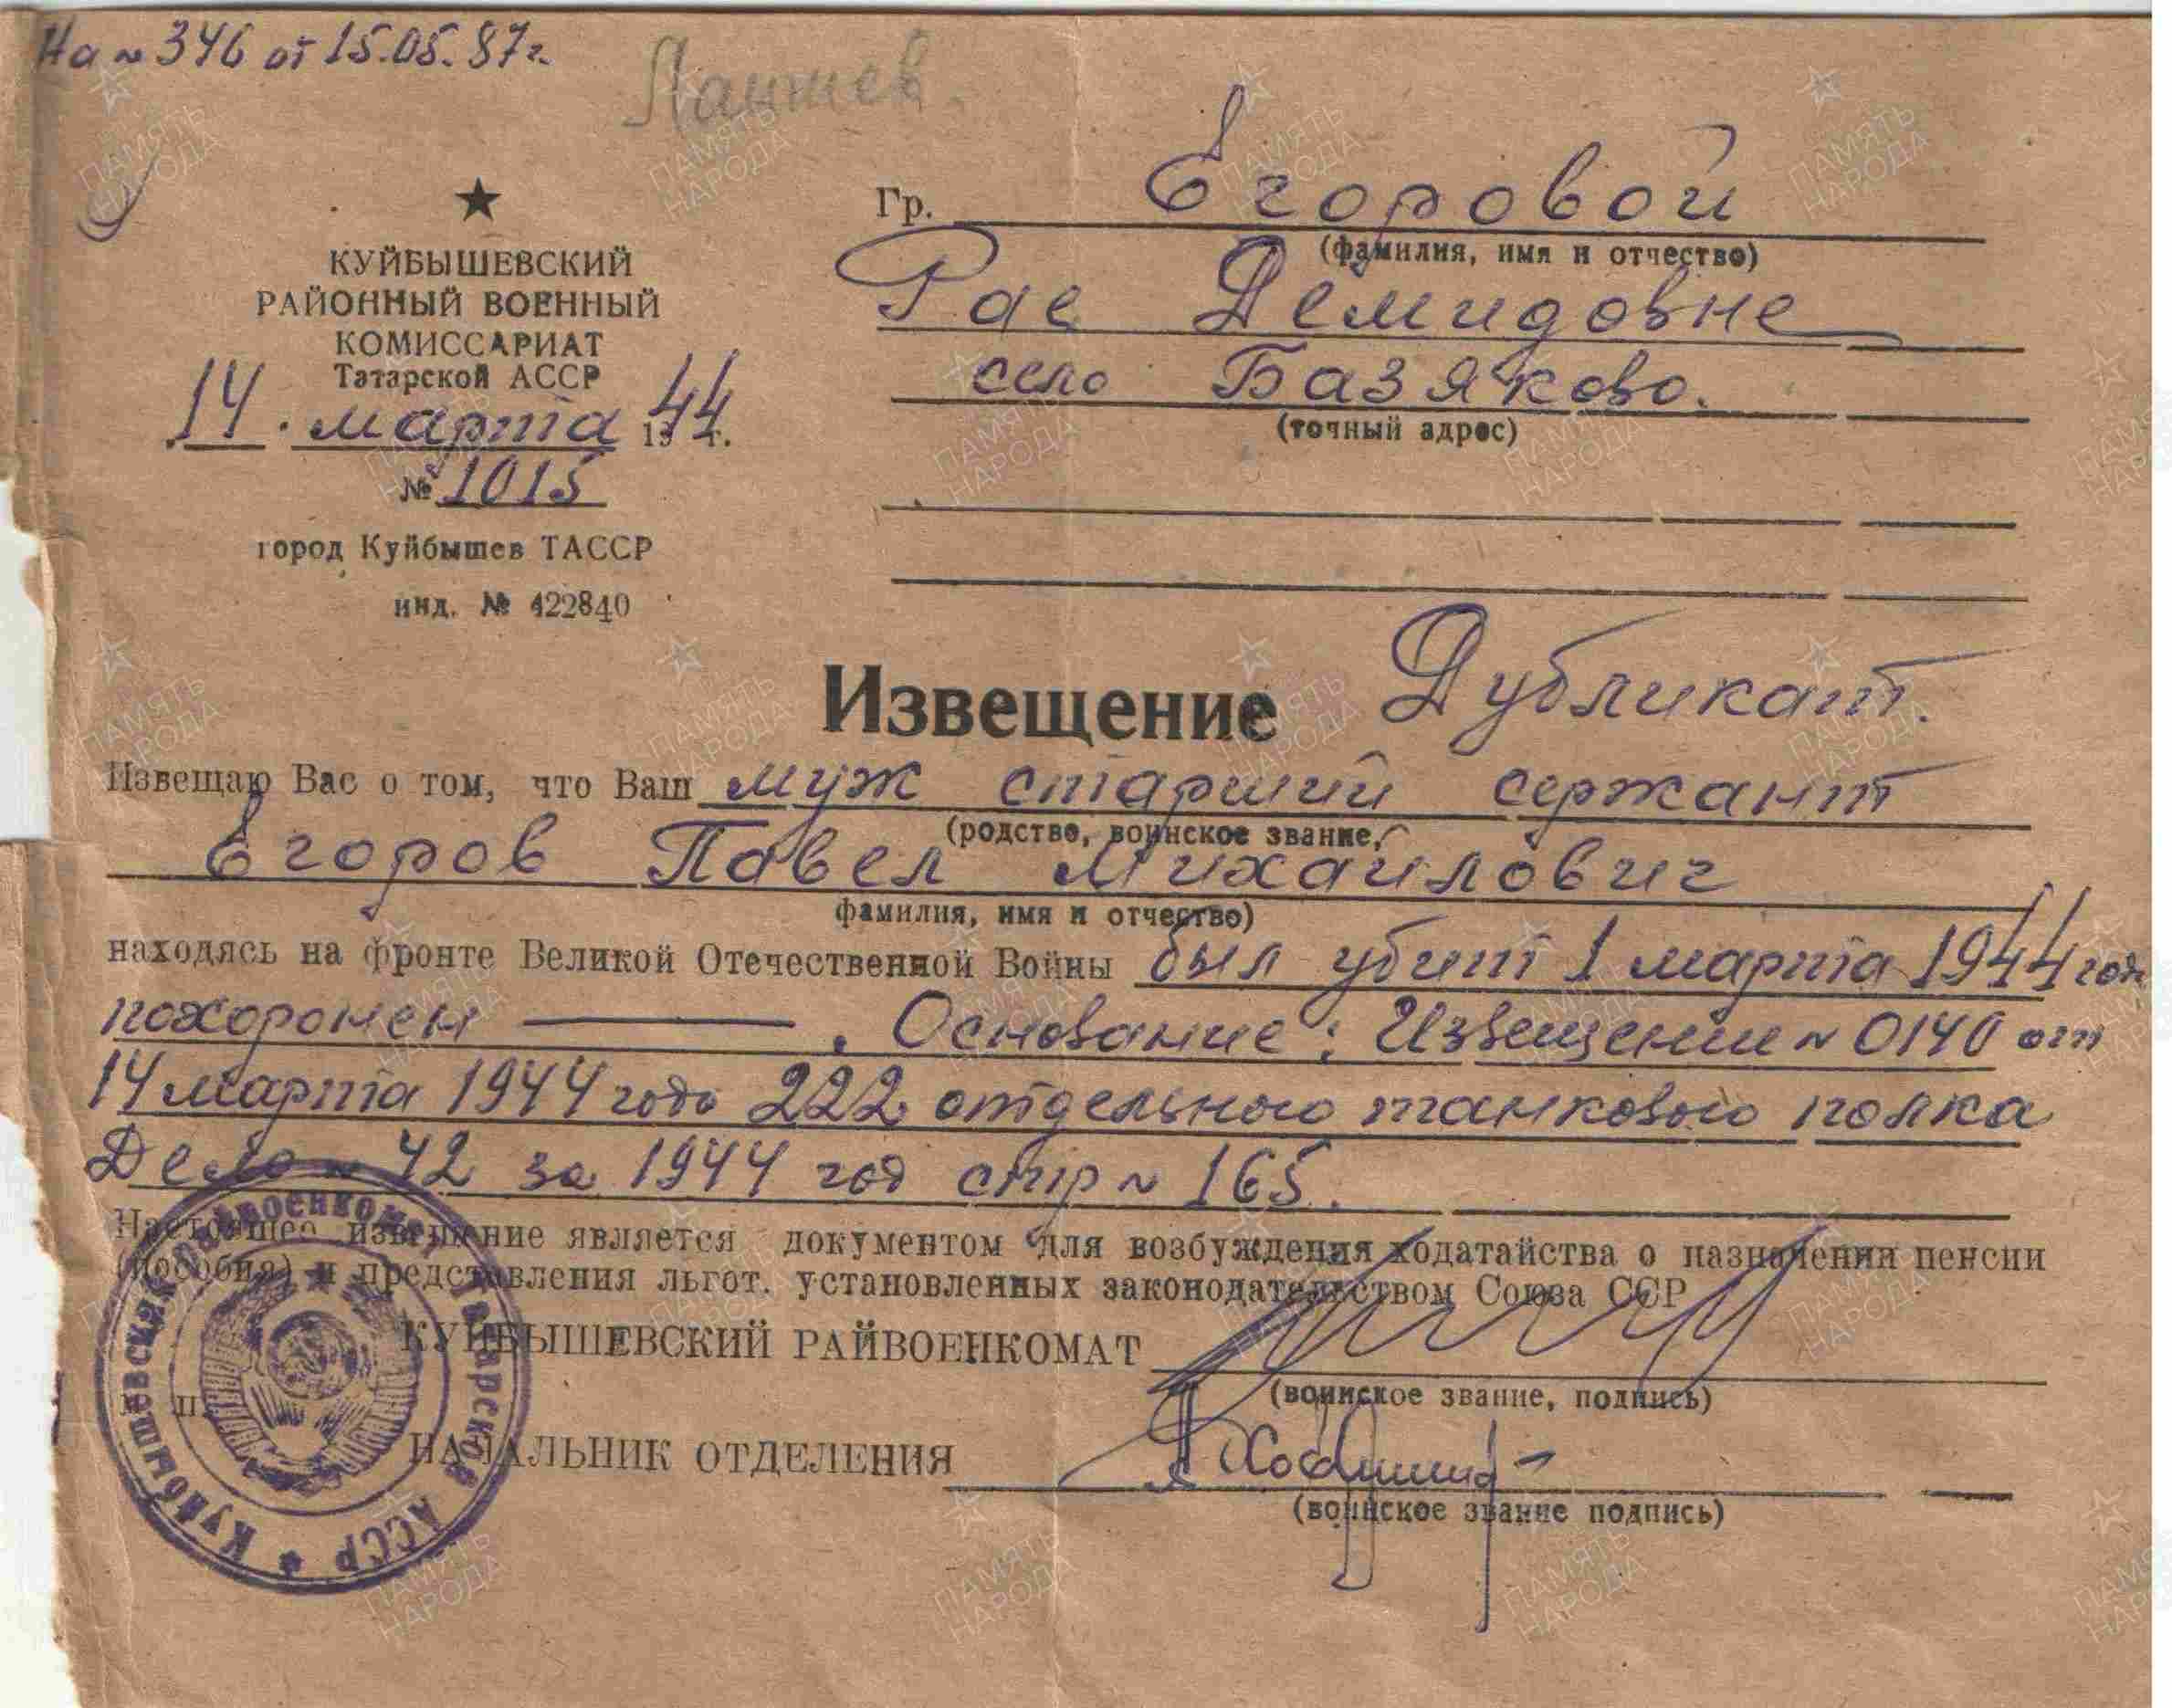 На № 346 от 15.05.87г.
КУЙБЫШЕВСКИЙ
РАЙОННЫЙ ВОЕННЫЙ
КОМИССАРИАТ
Татарской АССР
14. марта 1944 г.
№ 1015
город Куйбышев ТАССР
инд. № 422840
Гр. Егоровой
(фамилия, имя и отчество)
Рае Демидовне
село Базяково.
(точный адрес)
Извещение Дубликат.
Извещаю Вас о том, что Ваш муж старший сержант
(родство, воинское звание,
Егоров Павел Михайлович
фамилия, имя и отчество)
находясь на фронте Великой Отечественной Войны был убит 1 марта 1944 год
похоронен — . Основание: Извещение № 0140 от
14 марта 1944 года 222 отдельного танкового полка
Дело № 42 за 1944 год стр № 165.
Настоящее извещение является документом для возбуждения ходатайства о назначении пенсии
(пособия) и представления льгот. установленных законодательством Союза ССР
КУЙБЫШЕВСКИЙ РАЙВОЕНКОМАТ
(воинское звание, подпись)
м п.
НАЧАЛЬНИК ОТДЕЛЕНИЯ
(воинское звание подпись)
Куйбышевский райвоенкомат Татарской АССР
ПАМЯТЬ НАРОДА